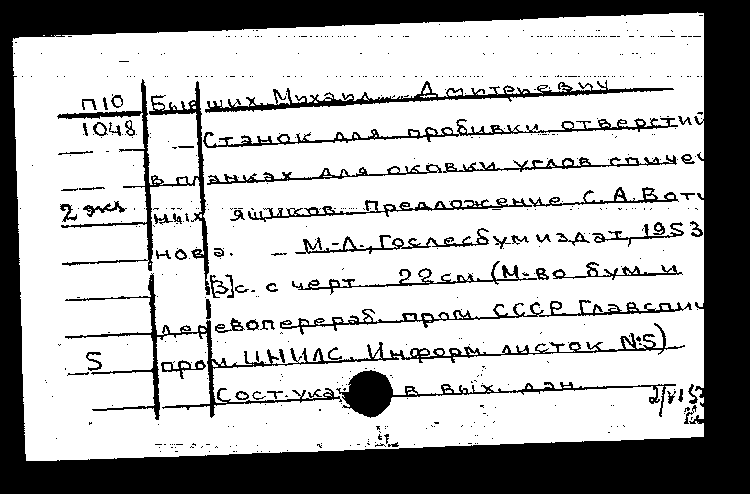 П10 Бывших Михаил Дмитриевич
1048 Станок для пробивки отверстий
в планках для оковки углов спичеч
2 экз ных ящиков. Предложение С. А. Вати
нова. – М.-Л., Гослесбумиздат, 1953
[3]с. с черт. 22 см. (М-во бум. и
деревоперераб. пром. СССР. Главспич
5 пром. ЦНИЛС. Информ. листок №5)
Сост. указ в вых. дан.
2/VI 53